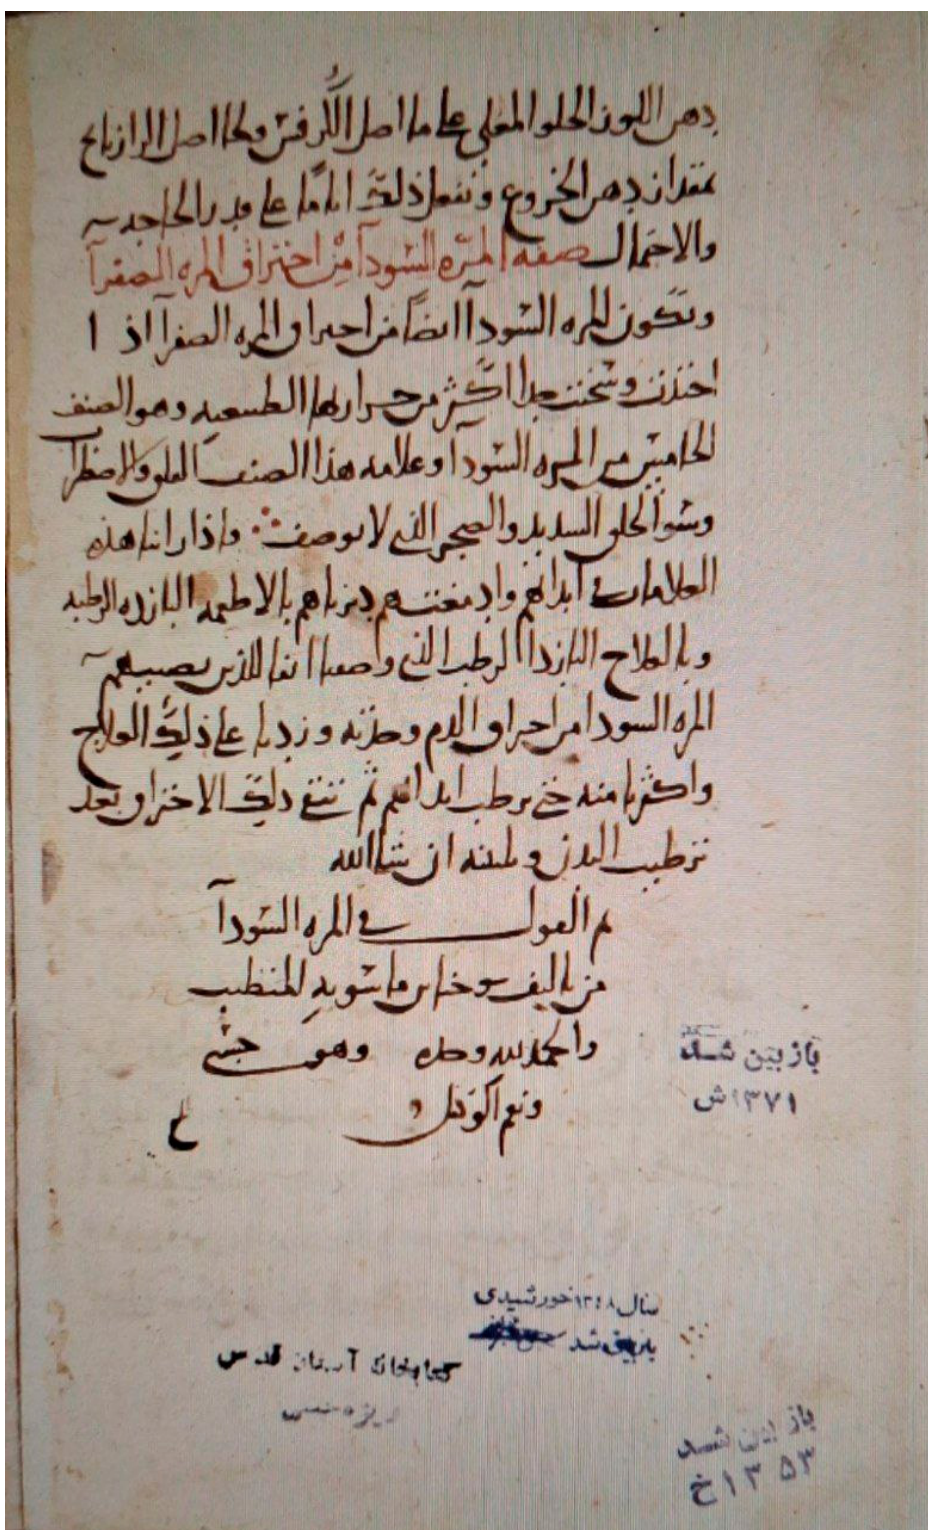 دهن اللوز الحلو المغلي على ما اصل الكرفس ولحا اصل الرازيانج
بمقدار دهن الخروع ونفعل ذلك اياما على قدر الحاجه
والاحتمال صفه المره السودآ من احتراق المره الصفرآ
وتكون المره السودآ ايضا من احتراق المره الصفرآ اذا
احتدت وسخنت جدا اكثر من حرارتها الطبيعيه وهو الصنف
الخامس من المره السودآ وعلامه هذا الصنف القلق والاضطراب
وسوٓ الخلق الشديد والضجر الذي لا يوصف ∴ فاذا راينا هذه
العلامات في ابدانهم وادمغتهم دبرناهم بالاطعمه البارده الرطبه
وبالعلاج البارد الرطب الذي وصفنا انفا للذين تصيبهم
المره السودا من احتراق الدم وحدته وزدنا على ذلك العلاج
واكثرنا منه حتى نرطب ابدانهم ثم ذلك الاحتراق بعد
ترطيب البدن وليينه ان شاالله
تم القول في المره السودآ
من تاليف يوحنا بن ماسويه المتطبب
والحمد لله وحده وهو حسبي
ونعم الوكيل
بازبین شد
۱۳۷۱ش
سال ۱۳۴۸ خورشیدی
بازبینی شد
کتابخانه آستان قدس
باز بین شد
۱۳۵۳خ